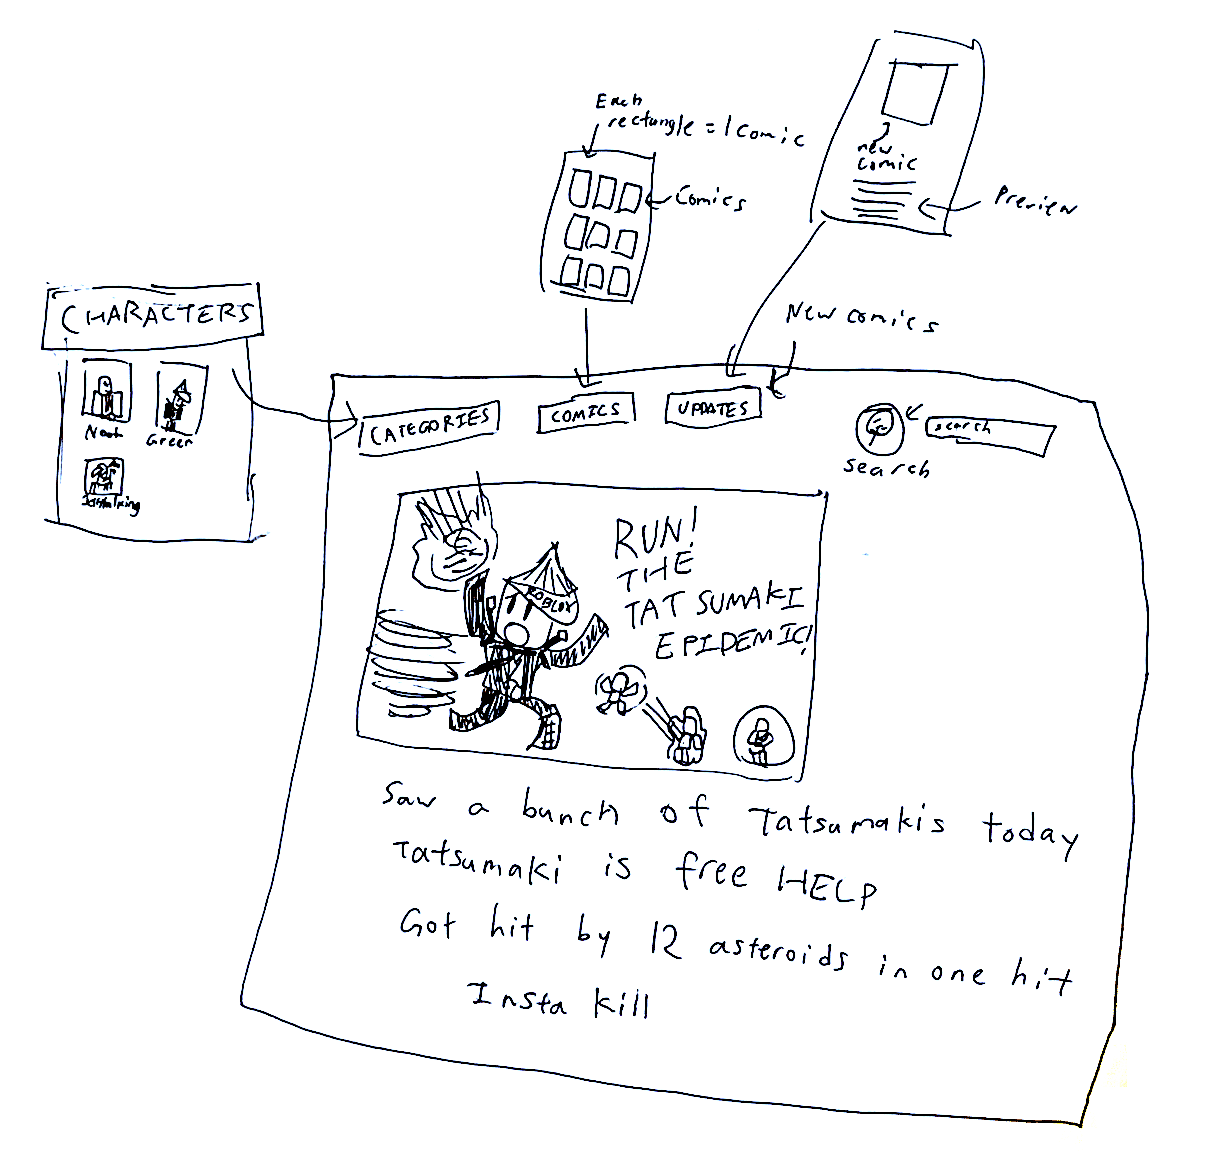 Each
rectangle = 1 Comic
Comics
new
comic
Preview
New comics
CHARACTERS
Noob
Green
CATEGORIES
COMICS
UPDATES
search
search
ROBLOX
RUN!
THE
TATSUMAKI
EPIDEMIC!
Saw a bunch of Tatsumakis today
Tatsumaki is free HELP
Got hit by 12 asteroids in one hit
Insta kill